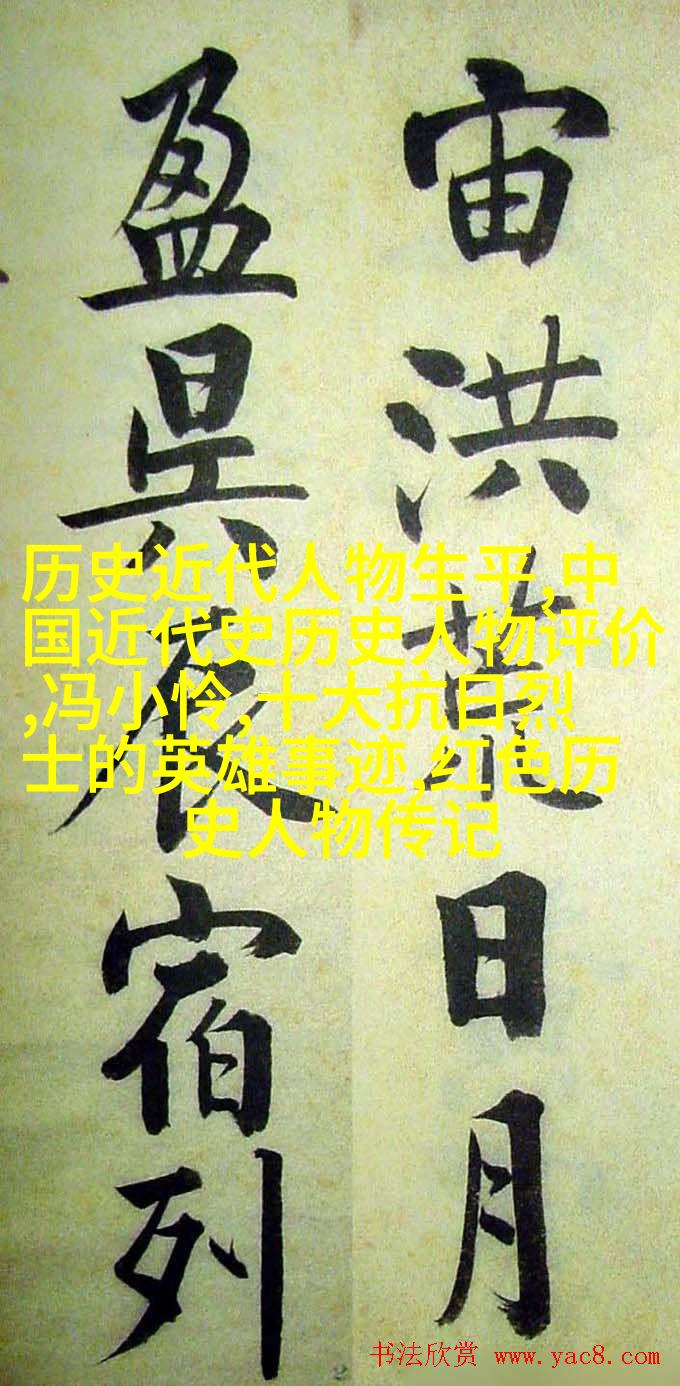 宙洪荒日月
盈昃辰宿列
历史近代人物生平,中
国近代史历史人物评价
,冯小怜,十大抗日烈
士的英雄事迹,红色历
史人物传记
书法欣赏 www.yac8.com